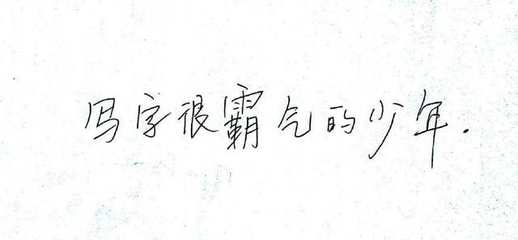 写字很霸气的少年.